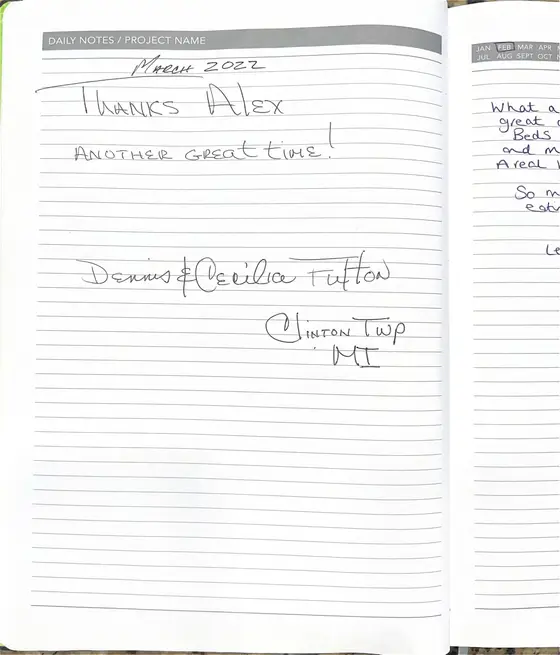 DAILY NOTES / PROJECT NAME
MARCH 2022
THANKS ALEX
ANOTHER GREAT TIME!
Dennis & Cecilia Tufton
CLINTON TWP
MI
JAN FEB MAR APR
JUL AUG SEPT OCT
What a
great
Beds
and m
A real
So m
eat
Le